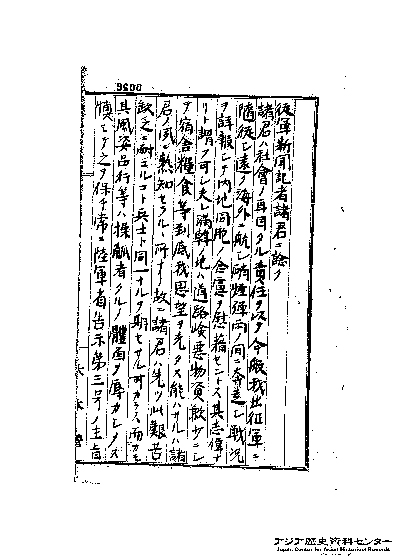 0056
従軍新聞記者諸君ニ諗ク
諸君ハ社會ノ耳目タル責任ヲ以テ今般我出征軍ニ
隨從シ遠ク海外ニ航シ硝煙弾雨ノ間ニ奔走シ戦況
ヲ詳報シテ内地同胞ノ念慮ヲ慰藉セントス其志偉ナ
リト謂フ可シ夫レ満韓ノ地ハ道路嶮悪物資欠少ニシ
テ宿舎糧食等到底我思望ヲ充タス能ハサルハ諸
君ノ夙ニ熟知セラルヽ所ナリ故ニ諸君ハ先ツ此艱苦
欠乏ニ耐ユルコト兵士ト同一ナルヲ期セサル可カラス而カモ
其風姿品行等ハ操觚者タルノ體面ヲ辱カシメス
慎ンテ之ヲ保チ常ニ陸軍省告示第三号ノ主旨
アジア歴史資料センター
Japan Center for Asian Historical Records